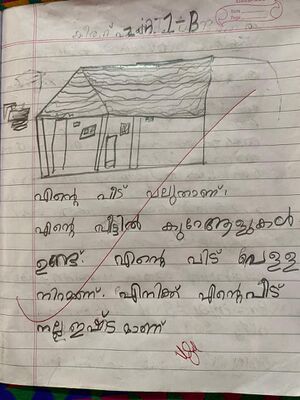 എന്റെ വീട് വലുതാണ്.
എന്റെ വീട്ടിൽ കുറേആളുകൾ
ഉണ്ട്. എന്റെ വിട് വെള്ള
നിറമണ്. എനിക്ക് എന്റെവീട്
നല്ല ഇഷ്ട മാണ്